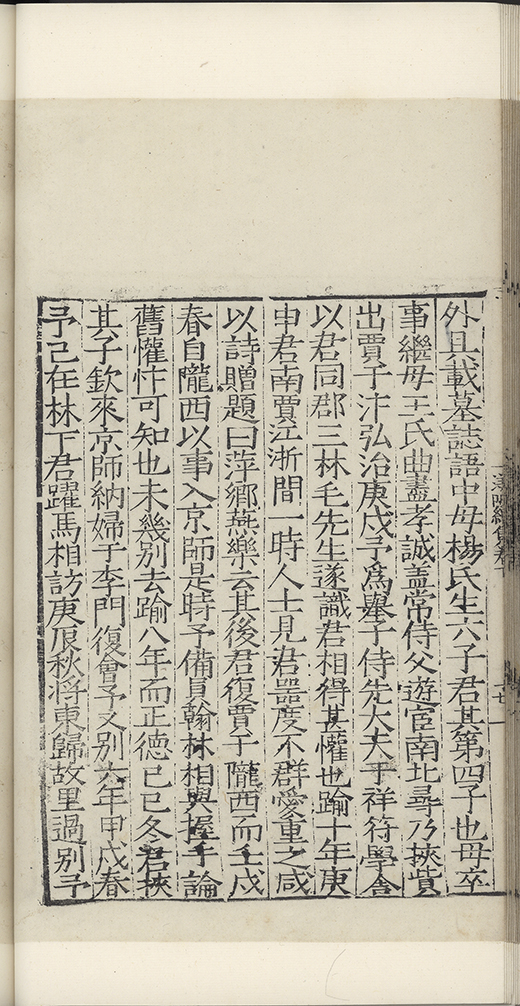 外具載墓誌語中母楊氏生六子君其第四子也母卒
事繼母王氏曲盡孝誠盖常侍父遊宦南北尋乃挾貲
出賈于汴弘治庚戌予爲舉子侍先大夫于祥符學舍
以君同郡三林毛先生遂識君相得甚懽也踰十年庚
申君南賈江浙間一時人士見君噐度不群愛重之咸
以詩贈題曰萍鄉燕樂云其後君復賈于隴西而壬戌
春自隴西以事入京師是時予備員翰林相與握手論
舊懽忭可知也未幾別去踰八年而正德己巳冬君挾
其子欽來京師納婦于李門復會予又別六年甲戌春
予已在林下君躍馬相訪庚辰秋将東歸故里過別予